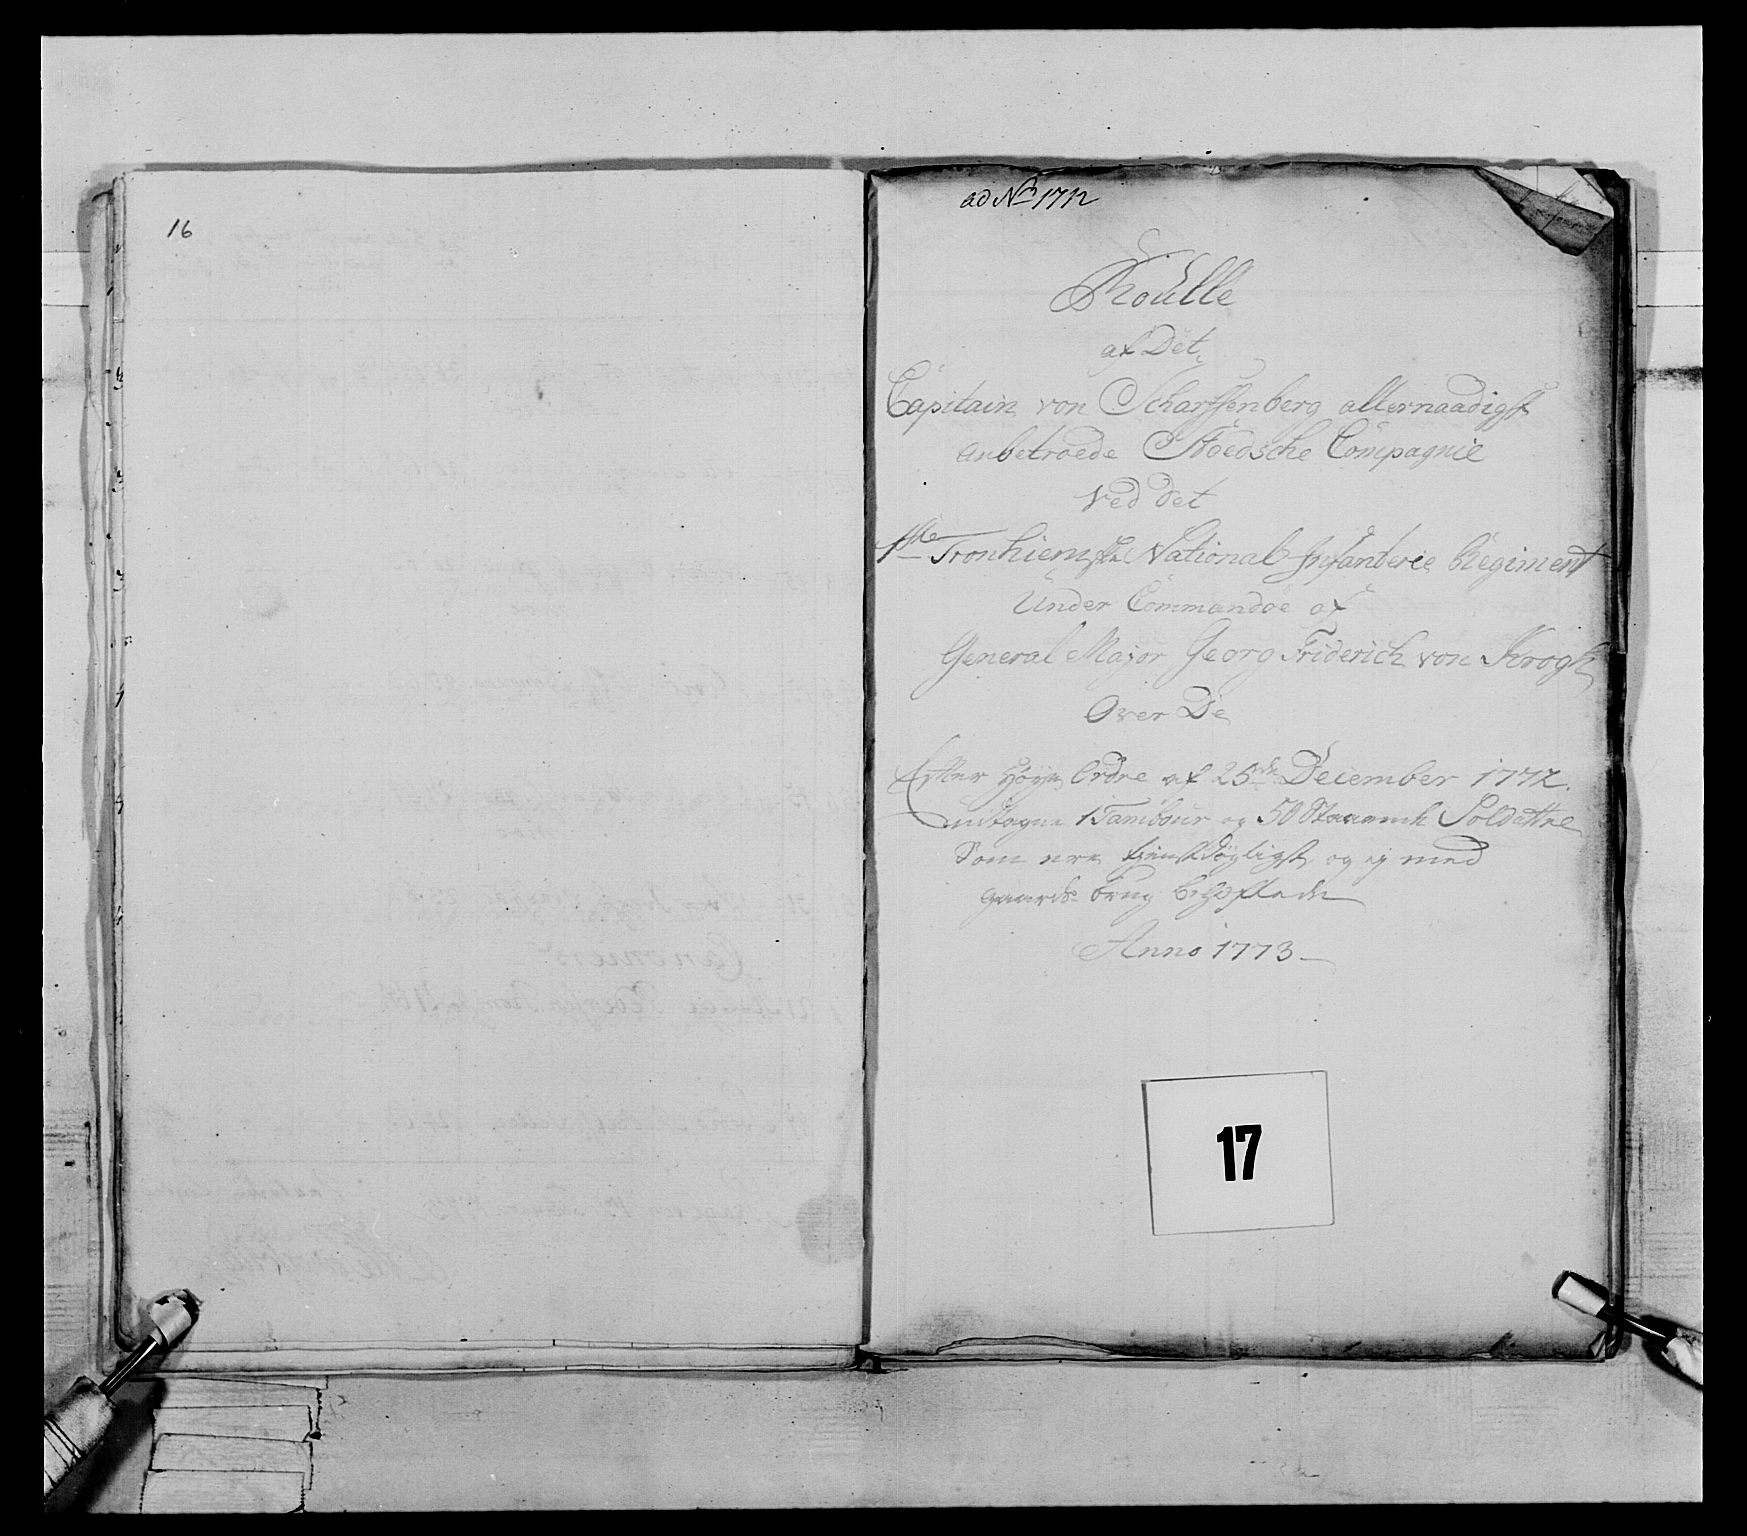 16
ad No 1712
Roulle
af Det
Capitain von Scharffenberg allernaadigst
anbetroede Stoedsche Compagnie
ved det
1ste Tronhiemske National Infanterie Regiment
Under Commandoe af
General Major Georg Friderich von Krogh
Over De
Efter Høye Ordre af 25de December 1772.
udtagne 1 Tambour og 50 Staaende Soldattre
Som ere tienstdygligst og ej med
gaards brug behæftede
Anno 1773
17